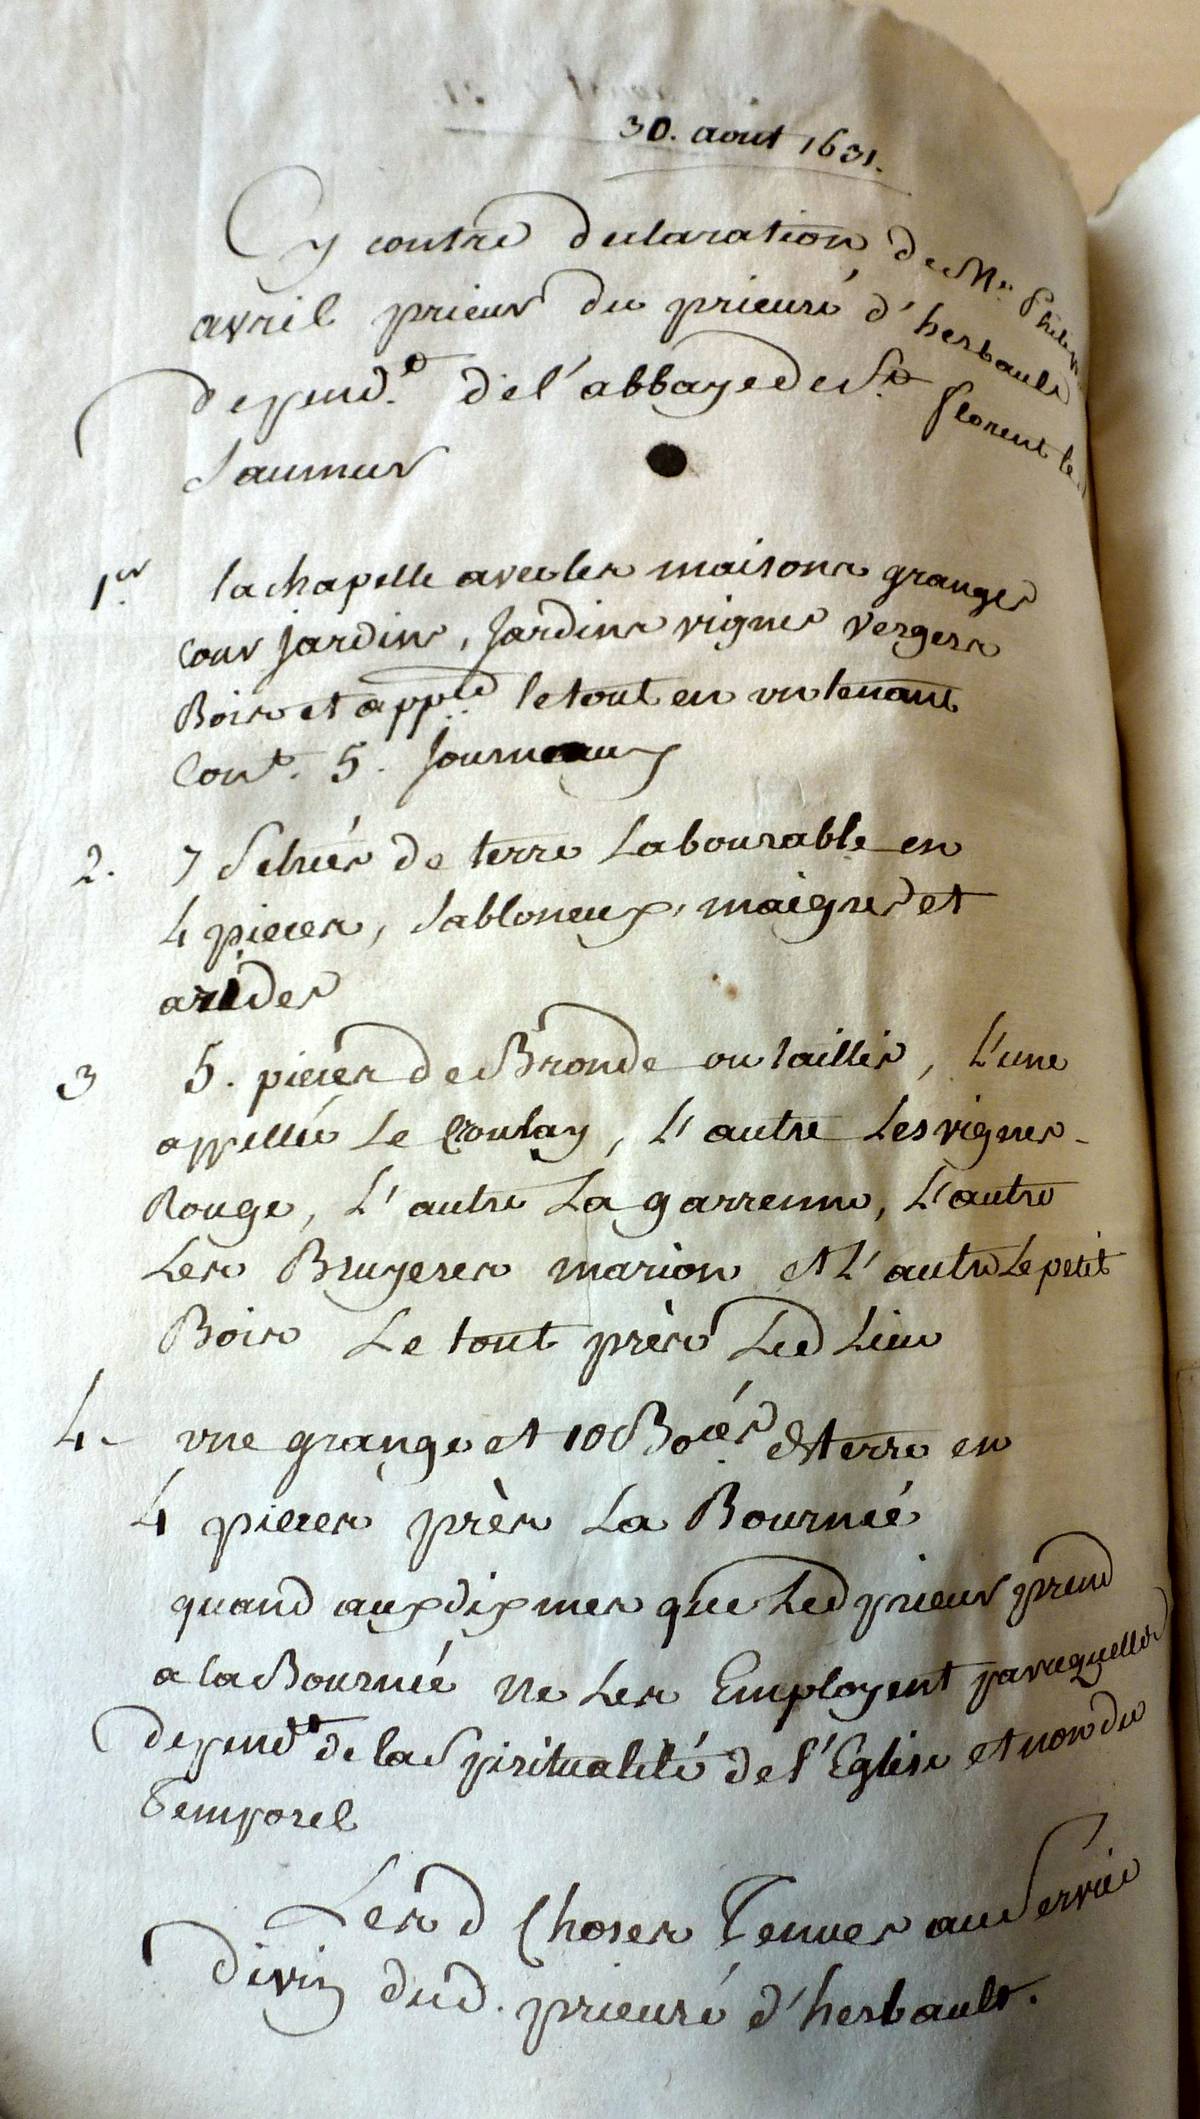 30. aout 1631.
Cy contre declaration de Mr.
avril prieur du prieuré d'herbault
depend.t de l'abbaye de St. florent le
Saumur
1er. la chapelle avec les maisons granges
cour jardins, jardins vignes vergers
Bois et app.ces le tout en un tenant
Cont. 5. Journeaux
2. 7 Setrées de terre Labourable en
4 pieces, Sabloneux, maigres et
arides
3 5. pieces de Bronde ou taillis, L'une
appellée Le Croulay, L'autre Les vignes-
Rouge, L'autre La garrenne, L'autre
Les Bruyeres marion et L'autre Le petit
Bois Le tout près Led Lieu
4- une grange et 10 Boées de terre en
4 pieces près La Bournée
quand aux dixmes que Led prieur prend
a la Bournée ne Les Employent parcequelles
depend.t de la Spiritualité de l'Eglise et non du
Temporel
Lesd Choses Tenues au Service
divin dud. prieuré d'herbault.